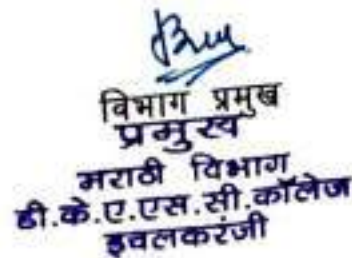 विभाग प्रमुख
प्रमुख
मराठी विभाग
डी.के.ए.एस.सी.कॉलेज
इचलकरंजी